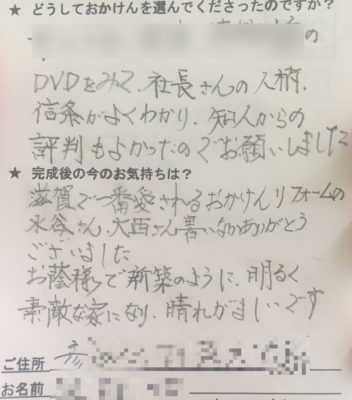 ★ どうしておかけんを選んでくださったのですか？
の
DVDをみて、社長さんの人柄、
信条がよくわかり、知人からの
評判もよかったのでお願いしました
★ 完成後の今のお気持ちは？
滋賀で一番愛されるおかけんリフォームの
水谷さん、大西さん暑いなかありがとう
ございました
お蔭様で新築のように、明るく
素敵な家になり、晴れがましいです
ご住所
お名前